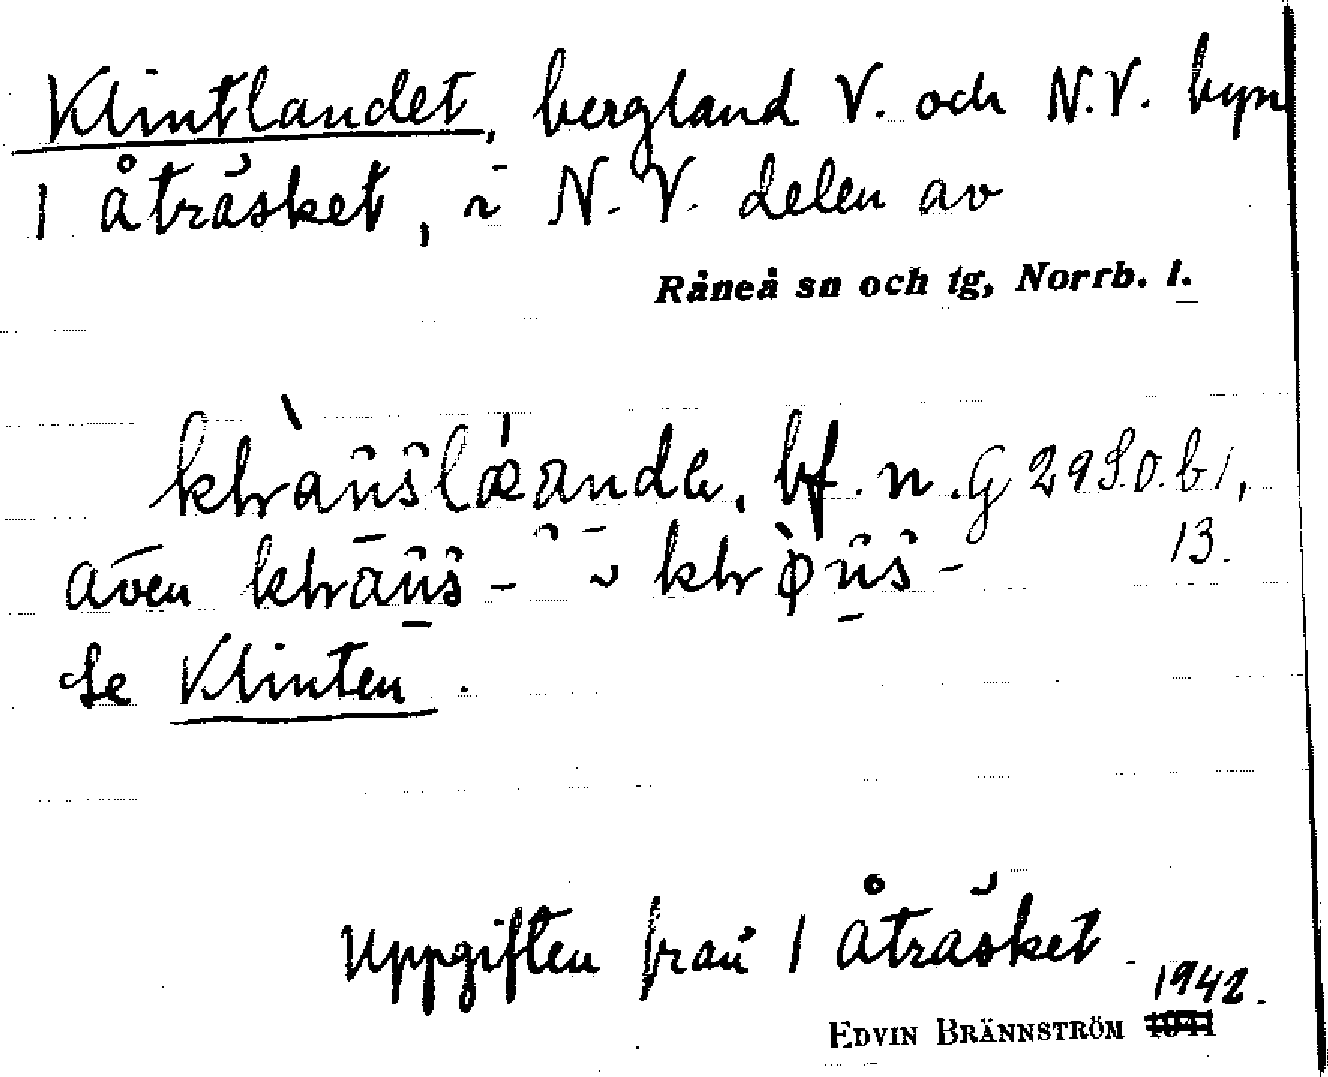 Klintlandet, bergland V. och N.V. byn
1 åträsket, i N.V. delen av
Råneå sn och tg, Norrb. l.
bf. n. G 29 S.O. b 1,
13.
även
se Klinten.
Uppgiften från 1 åträsket.
1942.
EDVIN BRÄNNSTRÖM 1941